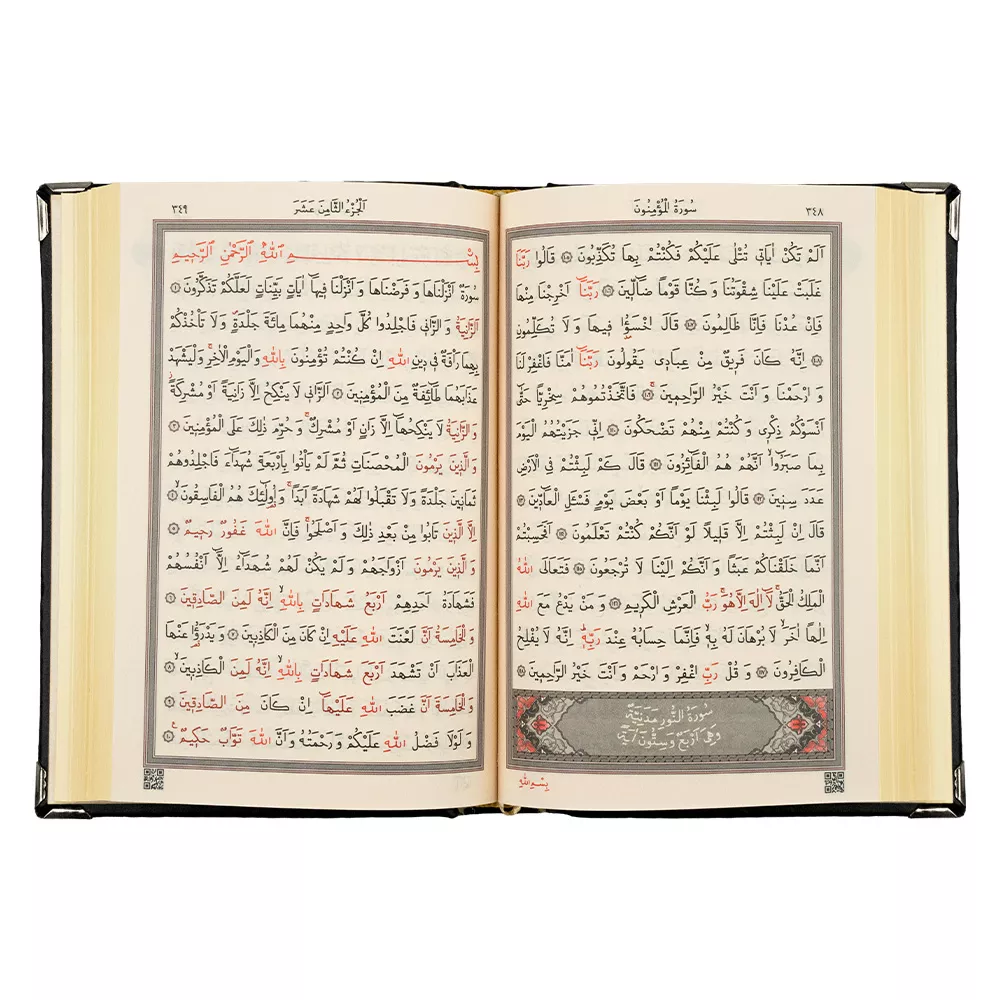 ٣٤٨
سُورَةُ الْمُؤْمِنُونَ
اَلَمْ تَكُنْ اٰيَات۪ي تُتْلٰى عَلَيْكُمْ فَكُنْتُمْ بِهَا تُكَذِّبُونَ ﴿١٠٥﴾ قَالُوا رَبَّنَا
غَلَبَتْ عَلَيْنَا شِقْوَتُنَا وَكُنَّا قَوْمًا ضَٓالّ۪ينَ ﴿١٠٦﴾ رَبَّنَٓا اَخْرِجْنَا مِنْهَا
فَاِنْ عُدْنَا فَاِنَّا ظَالِمُونَ ﴿١٠٧﴾ قَالَ اخْسَؤُ۫ا ف۪يهَا وَلَا تُكَلِّمُونِ
﴿١٠٨﴾ اِنَّهُ كَانَ فَر۪يقٌ مِنْ عِبَاد۪ي يَقُولُونَ رَبَّنَٓا اٰمَنَّا فَاغْفِرْ لَنَا
وَارْحَمْنَا وَاَنْتَ خَيْرُ الرَّاحِم۪ينَ ﴿١٠٩﴾ فَاتَّخَذْتُمُوهُمْ سِخْرِيًّا حَتّٰٓى
اَنْسَوْكُمْ ذِكْر۪ي وَكُنْتُمْ مِنْهُمْ تَضْحَكُونَ ﴿١١٠﴾ اِنّ۪ي جَزَيْتُهُمُ الْيَوْمَ
بِمَا صَبَرُٓوا اَنَّهُمْ هُمُ الْفَٓائِزُونَ ﴿١١١﴾ قَالَ كَمْ لَبِثْتُمْ فِي الْاَرْضِ
عَدَدَ سِن۪ينَ ﴿١١٢﴾ قَالُوا لَبِثْنَا يَوْمًا اَوْ بَعْضَ يَوْمٍ فَسْـَٔلِ الْعَٓادّ۪ينَ ﴿١١٣﴾
قَالَ اِنْ لَبِثْتُمْ اِلَّا قَل۪يلًا لَوْ اَنَّكُمْ كُنْتُمْ تَعْلَمُونَ ﴿١١٤﴾ اَفَحَسِبْتُمْ
اَنَّمَا خَلَقْنَاكُمْ عَبَثًا وَاَنَّكُمْ اِلَيْنَا لَا تُرْجَعُونَ ﴿١١٥﴾ فَتَعَالَى اللّٰهُ
الْمَلِكُ الْحَقُّۚ لَٓا اِلٰهَ اِلَّا هُوَۚ رَبُّ الْعَرْشِ الْكَر۪يمِ ﴿١١٦﴾ وَمَنْ يَدْعُ مَعَ اللّٰهِ
اِلٰهًا اٰخَرَۙ لَا بُرْهَانَ لَهُ بِه۪ۙ فَاِنَّمَا حِسَابُهُ عِنْدَ رَبِّه۪ۜ اِنَّهُ لَا يُفْلِحُ
الْكَافِرُونَ ﴿١١٧﴾ وَقُلْ رَبِّ اغْفِرْ وَارْحَمْ وَاَنْتَ خَيْرُ الرَّاحِم۪ينَ ﴿١١٨﴾
سُورَةُ النُّورِ مَدَنِيَّةٌ
وَهِيَ اَرْبَعٌ وَسِتُّونَ اٰيَةً
بِسْمِ اللّٰهِ
اَلْجُزْءُ الثَّامِنَ عَشَرَ
٣٤٩
بِسْمِ اللّٰهِ الرَّحْمٰنِ الرَّح۪يمِ
سُورَةٌ اَنْزَلْنَاهَا وَفَرَضْنَاهَا وَاَنْزَلْنَا ف۪يهَٓا اٰيَاتٍ بَيِّنَاتٍ لَعَلَّكُمْ تَذَكَّرُونَ ﴿١﴾
اَلزَّانِيَةُ وَالزَّان۪ي فَاجْلِدُوا كُلَّ وَاحِدٍ مِنْهُمَا مِائَةَ جَلْدَةٍۖ وَلَا تَأْخُذْكُمْ
بِهِمَا رَأْفَةٌ ف۪ي د۪ينِ اللّٰهِ اِنْ كُنْتُمْ تُؤْمِنُونَ بِاللّٰهِ وَالْيَوْمِ الْاٰخِرِۚ وَلْيَشْهَدْ
عَذَابَهُمَا طَٓائِفَةٌ مِنَ الْمُؤْمِن۪ينَ ﴿٢﴾ اَلزَّان۪ي لَا يَنْكِحُ اِلَّا زَانِيَةً اَوْ مُشْرِكَةًۘ
وَالزَّانِيَةُ لَا يَنْكِحُهَٓا اِلَّا زَانٍ اَوْ مُشْرِكٌۚ وَحُرِّمَ ذٰلِكَ عَلَى الْمُؤْمِن۪ينَ ﴿٣﴾
وَالَّذ۪ينَ يَرْمُونَ الْمُحْصَنَاتِ ثُمَّ لَمْ يَأْتُوا بِاَرْبَعَةِ شُهَدَٓاءَ فَاجْلِدُوهُمْ
ثَمَان۪ينَ جَلْدَةً وَلَا تَقْبَلُوا لَهُمْ شَهَادَةً اَبَدًاۚ وَاُو۬لٰٓئِكَ هُمُ الْفَاسِقُونَ ﴿٤﴾
اِلَّا الَّذ۪ينَ تَابُوا مِنْ بَعْدِ ذٰلِكَ وَاَصْلَحُواۚ فَاِنَّ اللّٰهَ غَفُورٌ رَح۪يمٌ ﴿٥﴾
وَالَّذ۪ينَ يَرْمُونَ اَزْوَاجَهُمْ وَلَمْ يَكُنْ لَهُمْ شُهَدَٓاءُ اِلَّٓا اَنْفُسُهُمْ
فَشَهَادَةُ اَحَدِهِمْ اَرْبَعُ شَهَادَاتٍ بِاللّٰهِۙ اِنَّهُ لَمِنَ الصَّادِق۪ينَ ﴿٦﴾
وَالْخَامِسَةُ اَنَّ لَعْنَتَ اللّٰهِ عَلَيْهِ اِنْ كَانَ مِنَ الْكَاذِب۪ينَ ﴿٧﴾ وَيَدْرَؤُ۬ا عَنْهَا
الْعَذَابَ اَنْ تَشْهَدَ اَرْبَعَ شَهَادَاتٍ بِاللّٰهِۙ اِنَّهُ لَمِنَ الْكَاذِب۪ينَۙ ﴿٨﴾
وَالْخَامِسَةَ اَنَّ غَضَبَ اللّٰهِ عَلَيْهَٓا اِنْ كَانَ مِنَ الصَّادِق۪ينَ ﴿٩﴾
وَلَوْلَا فَضْلُ اللّٰهِ عَلَيْكُمْ وَرَحْمَتُهُ وَاَنَّ اللّٰهَ تَوَّابٌ حَك۪يمٌ۟ ﴿١٠﴾